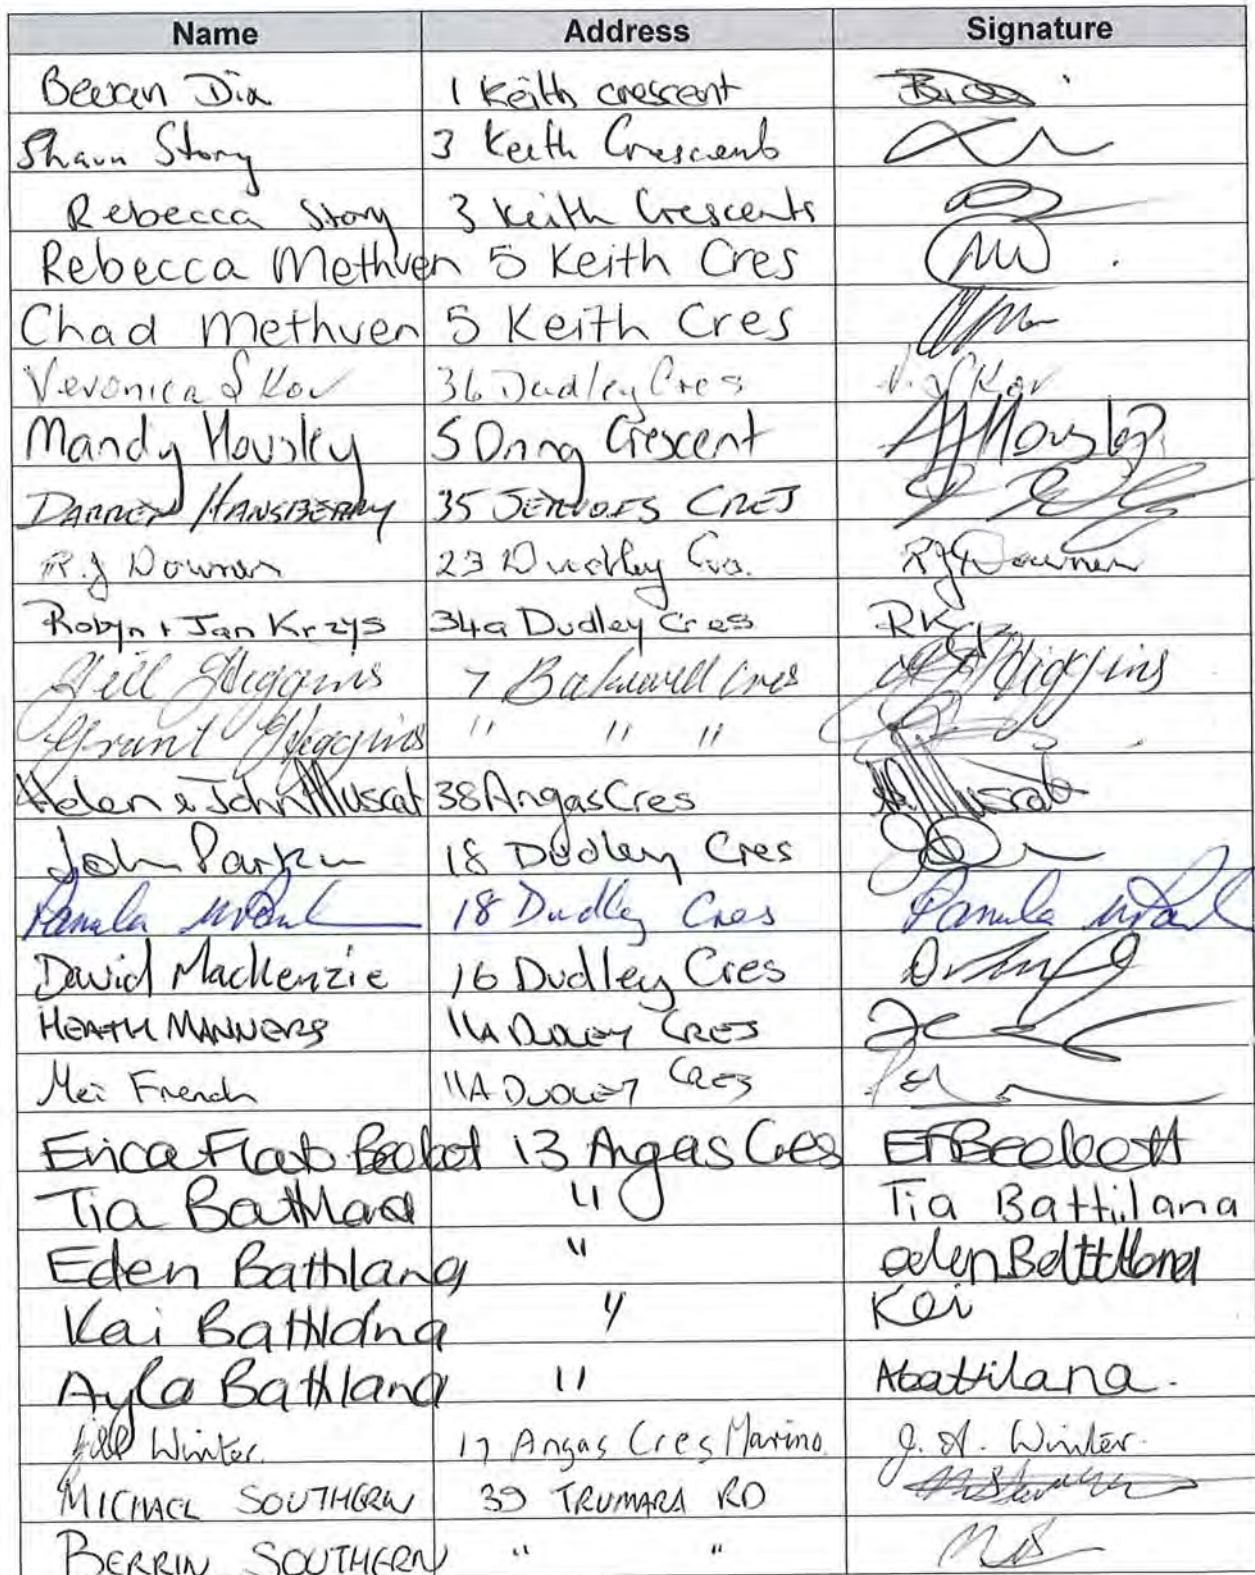 Name Address Signature
Bevan Dix 1 Keith crescent
Shaun Story 3 Keith Crescent
Rebecca Story 3 Keith Crescents
Rebecca Methven 5 Keith Cres
Chad Methven 5 Keith Cres
Veronica Skov 36 Dudley Cres V. Skov
Mandy Housley 5 Crescent Housley
DARREN HANSBERRY 35 CRES
R.J Downer 23 Dudley Cres. RJ Downer
Robyn + Jan Krzys 34a Dudley Cres RK
Jill Higgins 7 Bakewell Cres Higgins
Grant Higgins " " "
Helen & John Muscat 38 Angas Cres Muscat
John 18 Dudley Cres
Pamela 18 Dudley Cres Pamela
David Mackenzie 16 Dudley Cres
HEATH MANNERS 11A DUDLEY CRES
Mei French 11A DUDLEY CRES
Erica 13 Angas Cres
Tia Battilana " Tia Battilana
Eden Battilana " eden Battilana
Kai Battilana " Kai
Ayla Battilana " Abattilana.
Jill Winter. 17 Angas Cres Marino. J. A. Winter.
MICHAEL SOUTHERN 39 TRUMARA RD
BERRIN SOUTHERN " "